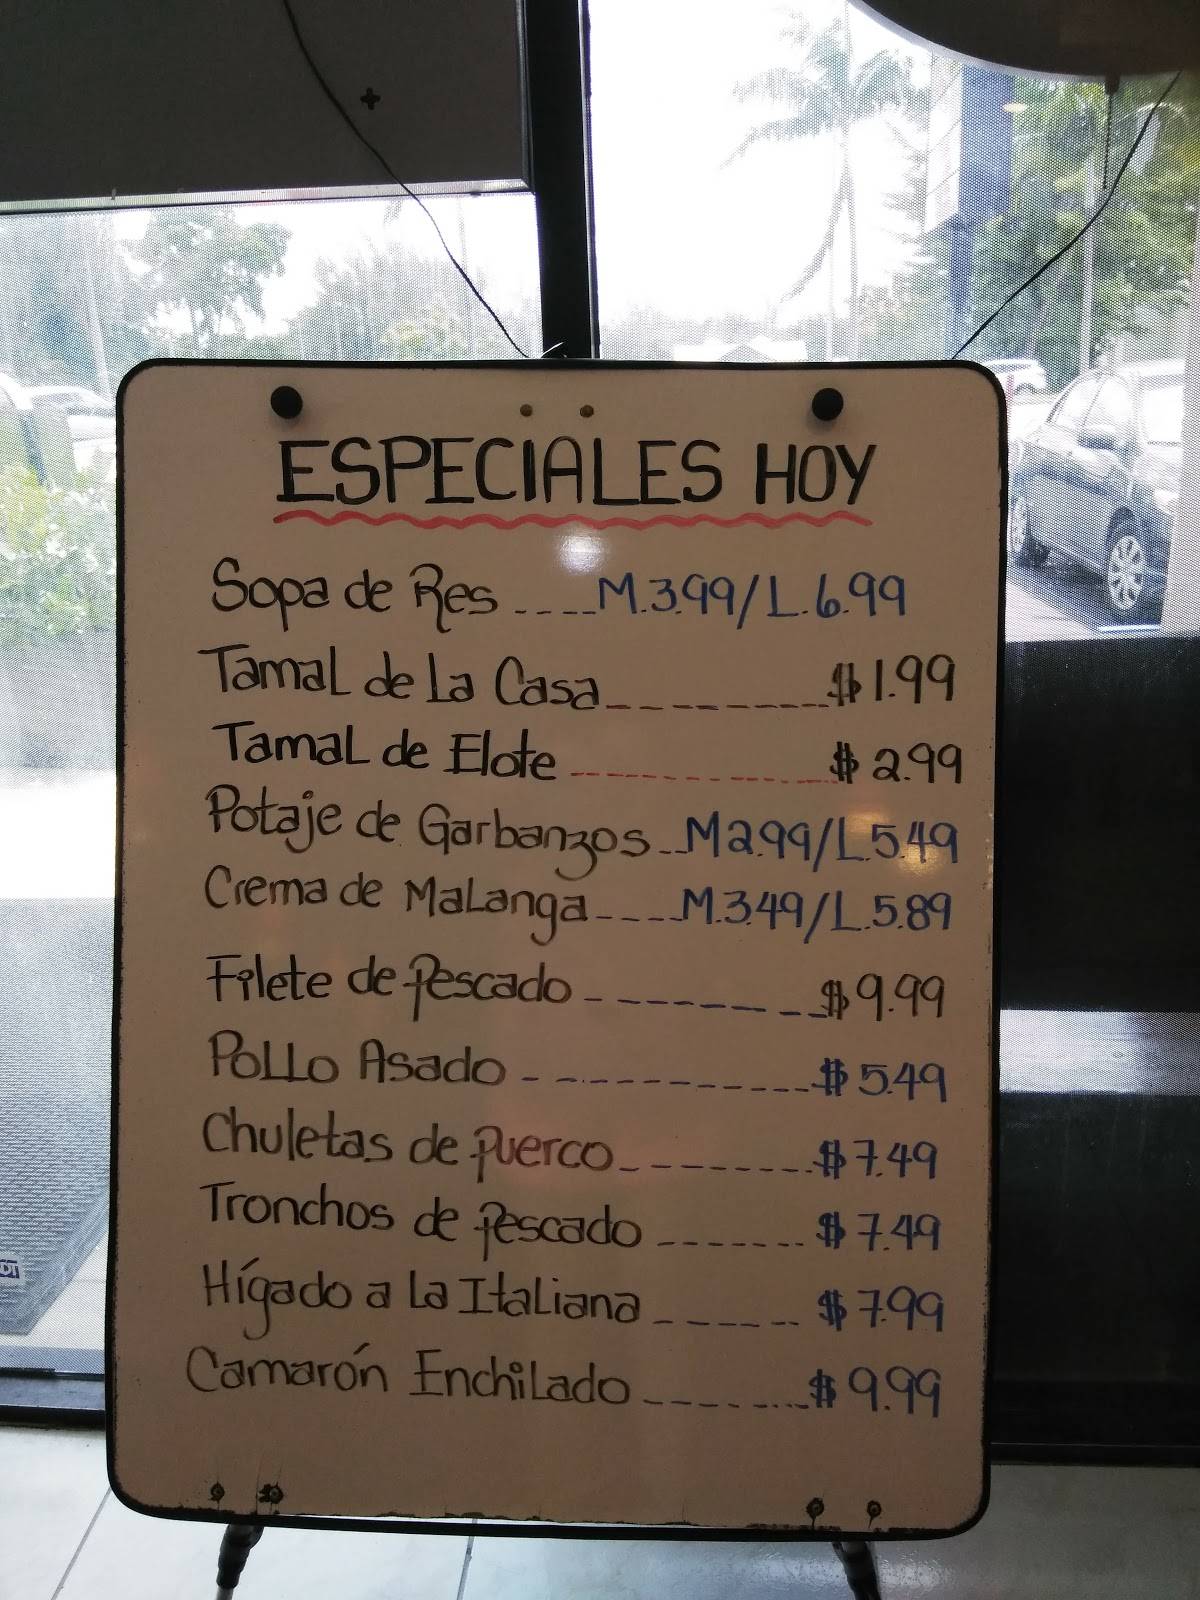 ESPECIALES HOY
Sopa de Res ---- M.3.99/L.6.99
Tamal de La Casa ---------- $1.99
Tamal de Elote ------------ $2.99
Potaje de Garbanzos -- M2.99/L.5.49
Crema de Malanga ---- M.3.49/L.5.89
Filete de Pescado --------- $9.99
Pollo Asado ------------ $5.49
Chuletas de Puerco -------- $7.49
Tronchos de Pescado ------- $7.49
Hígado a la Italiana ------ $7.99
Camarón Enchilado -------- $9.99